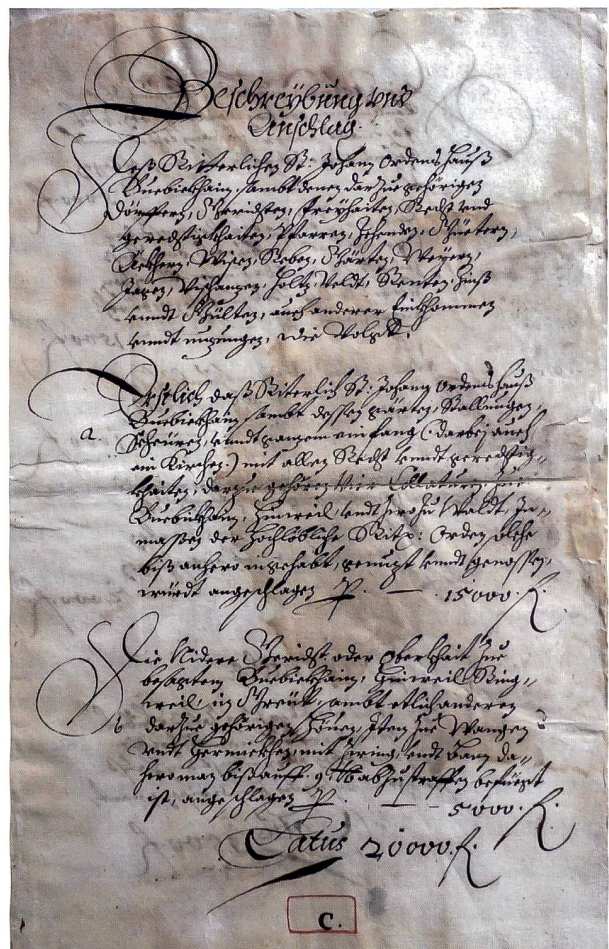 Beschreÿbung vnd
Anschlag.
Deß Ritterlichen St: Johann Ordens Hauß
Buebickhain, sambt denen darzue gehörigen
dörffern, Gerichten, Freÿhaiten, Recht vnd
gerechtigkhaiten, Pfarren, Zehenden, Güetern,
Äckhern, Wisen, Reben, Gärten, Weÿern,
Jagen, Vischenzen, Holtz, Veldt, Renten, Zinß
vnndt Gülten, auch anderer Einkhommen
vnndt nuzungen, wie Volgt.
Erstlich daß Riterlich St: Johann Ordens Hauß
Buebickhain sambt dessen gärten, Stallungen
a. Scheüren, vnndt ganzem einfang (: darbeÿ auch
ein Kirchen :) mit allen Recht vnndt gerechtig-
khaiten, darzue gehören Vier Collaturen,
Buebickhain, Hinweil, vndt Waldt, In-
massen der Hochlöbliche Ritr: Orden solche
biß anhero ingehabt, genuzt vnndt genossen,
würdt angeschlagen p. — 15000. f.
Die Nidere Gericht oder oberkhait zue
besagtem Buebickhain, Hinweil, Ring-
weil, im Greüt, sambt etlich anderen
b darzue gehörigen Höuen, Item zue Wangen
vndt mit zwing, vndt bann da-
hero man biß auff 9 lb abzustraffen befüegt
ist, angeschlagen p. — 5000. f.
Latus 20000. f.
C.